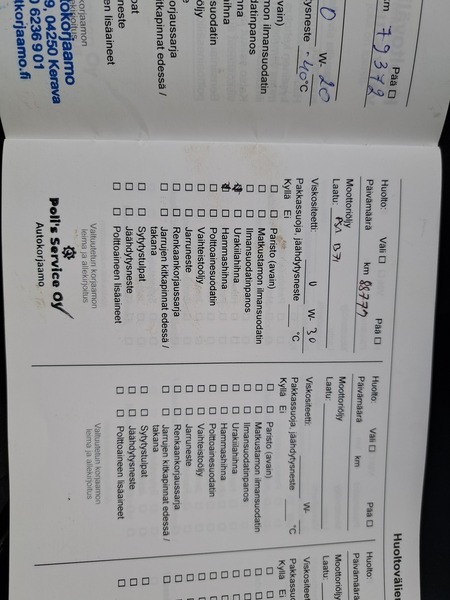 cm 79372 Pää ☐
0 W- 20
ysneste -40 °C
avain)
mon ilmansuodatin
danpanos
hna
hihna
suodatin
öljy
ste
korjaussarja
kitkapinnat edessä /
pat
neste
en lisäaineet
korjaamon
kirjoitus
tokorjaamo
9, 04250 Kerava
0 6236 901
tkorjaamo.fi
Huolto: Väli ☐ Pää ☐
Päivämäärä km 88777
Moottoriöljy
Laatu: PSA B71
Viskositeetti: 0 W- 30
Pakkassuoja, jäähdytysneste °C
Kyllä Ei
☐ ☐ Paristo (avain)
☐ ☐ Matkustamon ilmansuodatin
☐ ☐ Ilmansuodatinpanos
☐ Urakiilahihna
☐ Hammashihna
☐ ☐ Polttoainesuodatin
☐ ☐ Vaihteistoöljy
☐ ☐ Jarruneste
☐ ☐ Renkaankorjaussarja
☐ ☐ Jarrujen kitkapinnat edessä /
takana
☐ ☐ Sytytystulpat
☐ ☐ Jäähdytysneste
☐ ☐ Polttoaineen lisäaineet
Valtuutetun korjaamon
leima ja allekirjoitus
Poll's Service oy
Autokorjaamo
Huolto: Väli ☐ Pää ☐
Päivämäärä km
Moottoriöljy
Laatu:
Viskositeetti: W-
Pakkassuoja, jäähdytysneste °C
Kyllä Ei
☐ ☐ Paristo (avain)
☐ ☐ Matkustamon ilmansuodatin
☐ ☐ Ilmansuodatinpanos
☐ ☐ Urakiilahihna
☐ ☐ Hammashihna
☐ ☐ Polttoainesuodatin
☐ ☐ Vaihteistoöljy
☐ ☐ Jarruneste
☐ ☐ Renkaankorjaussarja
☐ ☐ Jarrujen kitkapinnat edessä /
takana
☐ ☐ Sytytystulpat
☐ ☐ Jäähdytysneste
☐ ☐ Polttoaineen lisäaineet
Valtuutetun korjaamon
leima ja allekirjoitus
Huoltovälien
Huolto:
Päivämäärä
Moottoriöljy
Laatu:
Viskositeet
Pakkassuo
Kyllä Ei